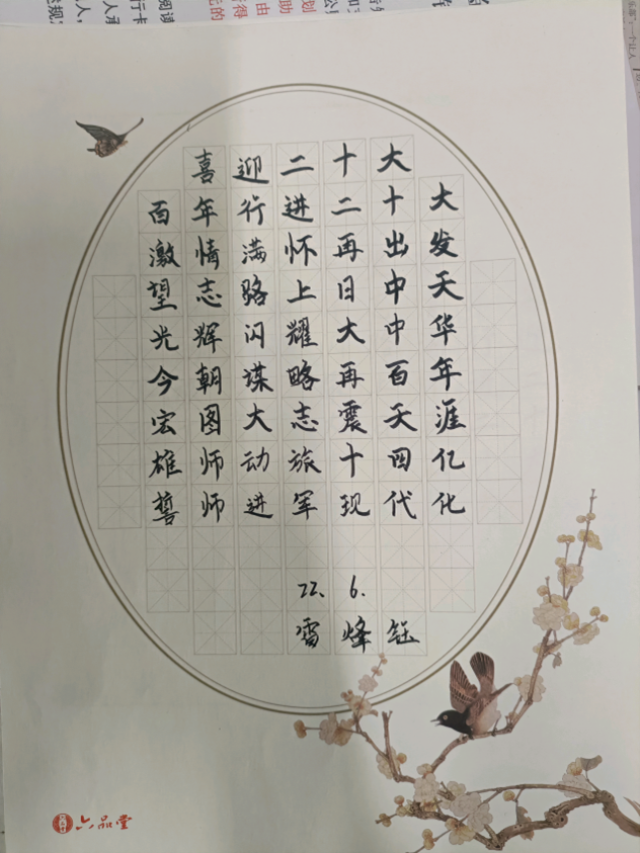 喜迎二十大
百年行进二十大
激情满怀再出发
望志路上日中天
光辉闪耀大中华
今朝谋略再百年
宏图大志震天涯
雄师动旅十四亿
誓师进军现代化
22. 6.
雷烽钰
六品堂